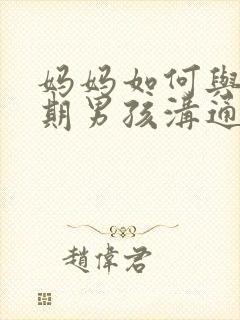 妈妈如何與
期男孩溝通
趙偉君